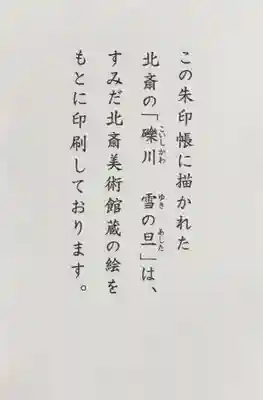 この朱印帳に描かれた
北斎の「礫川　雪の旦」は、
すみだ北斎美術館蔵の絵を
もとに印刷しております。
こいしかわ
ゆき
あした